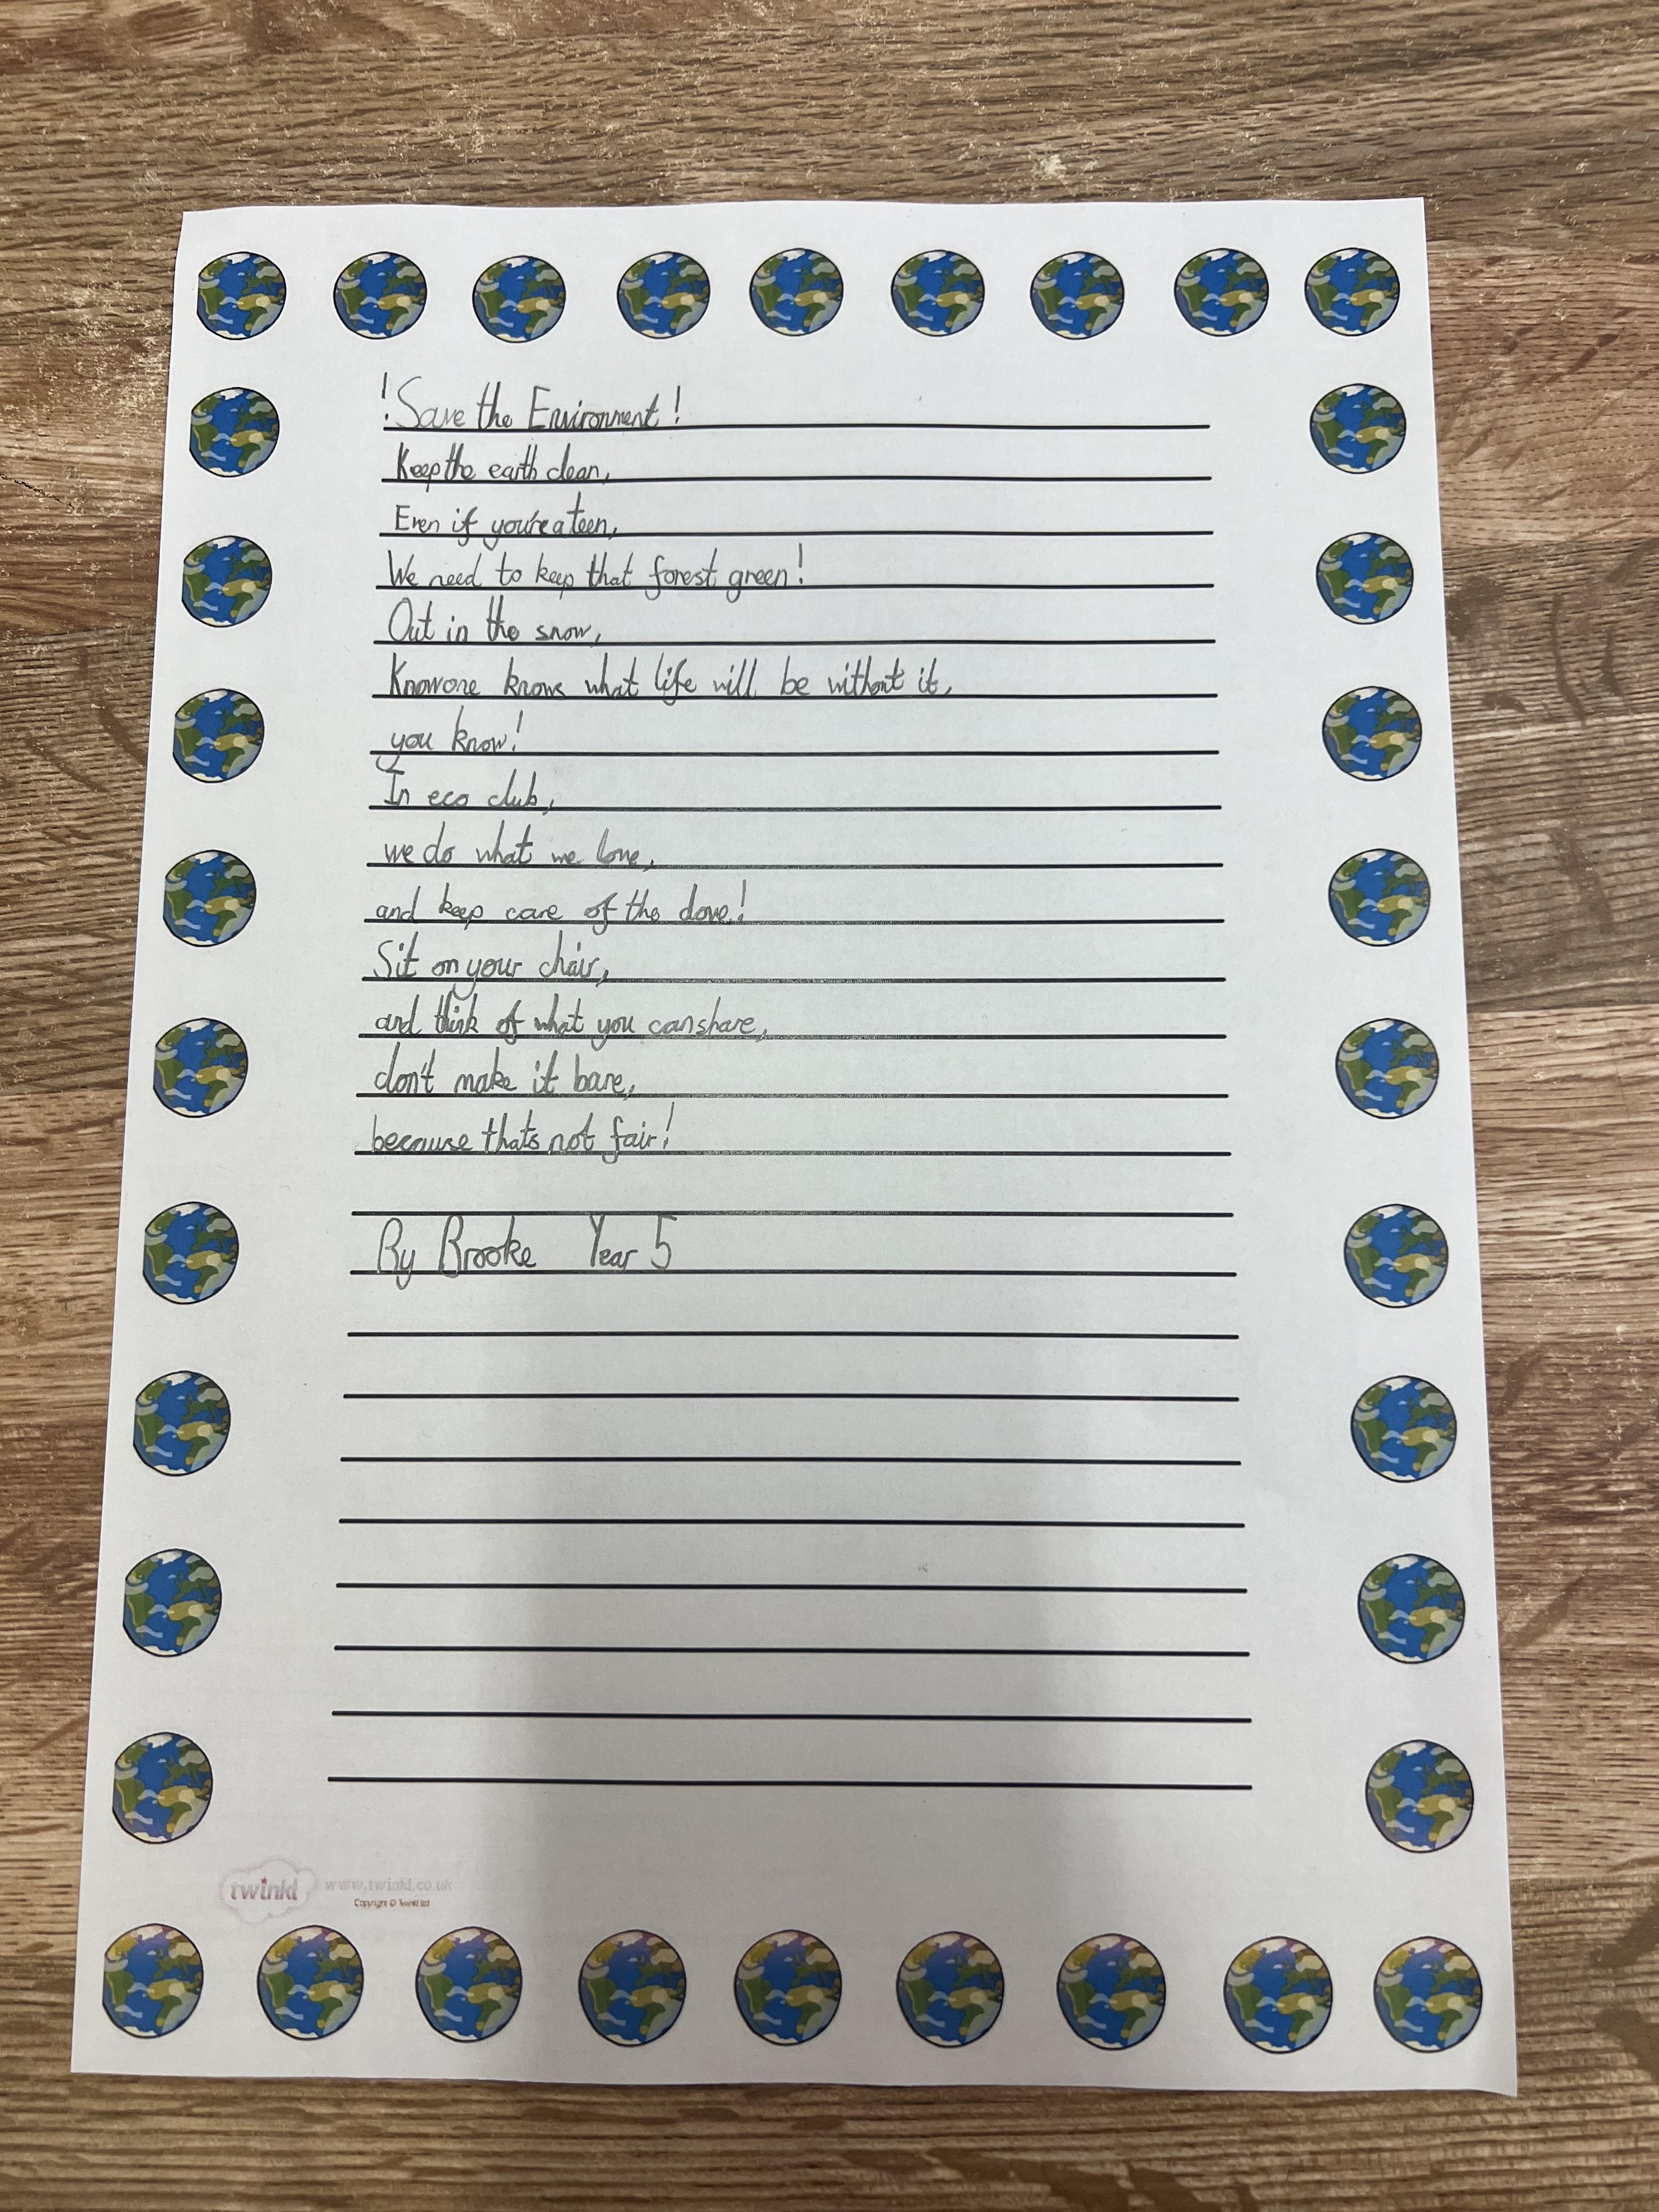 ! Save the Environment !
Keep the earth clean,
Even if you're a teen,
We need to keep that forest green!
Out in the snow,
Knowone knows what life will be without it,
you know!
In eco club,
we do what we love,
and keep care of the dove!
Sit on your chair,
and think of what you can share,
don't make it bare,
because thats not fair!
By Brooke Year 5
twinkl www.twinkl.co.uk
Copyright © Twinkl Ltd